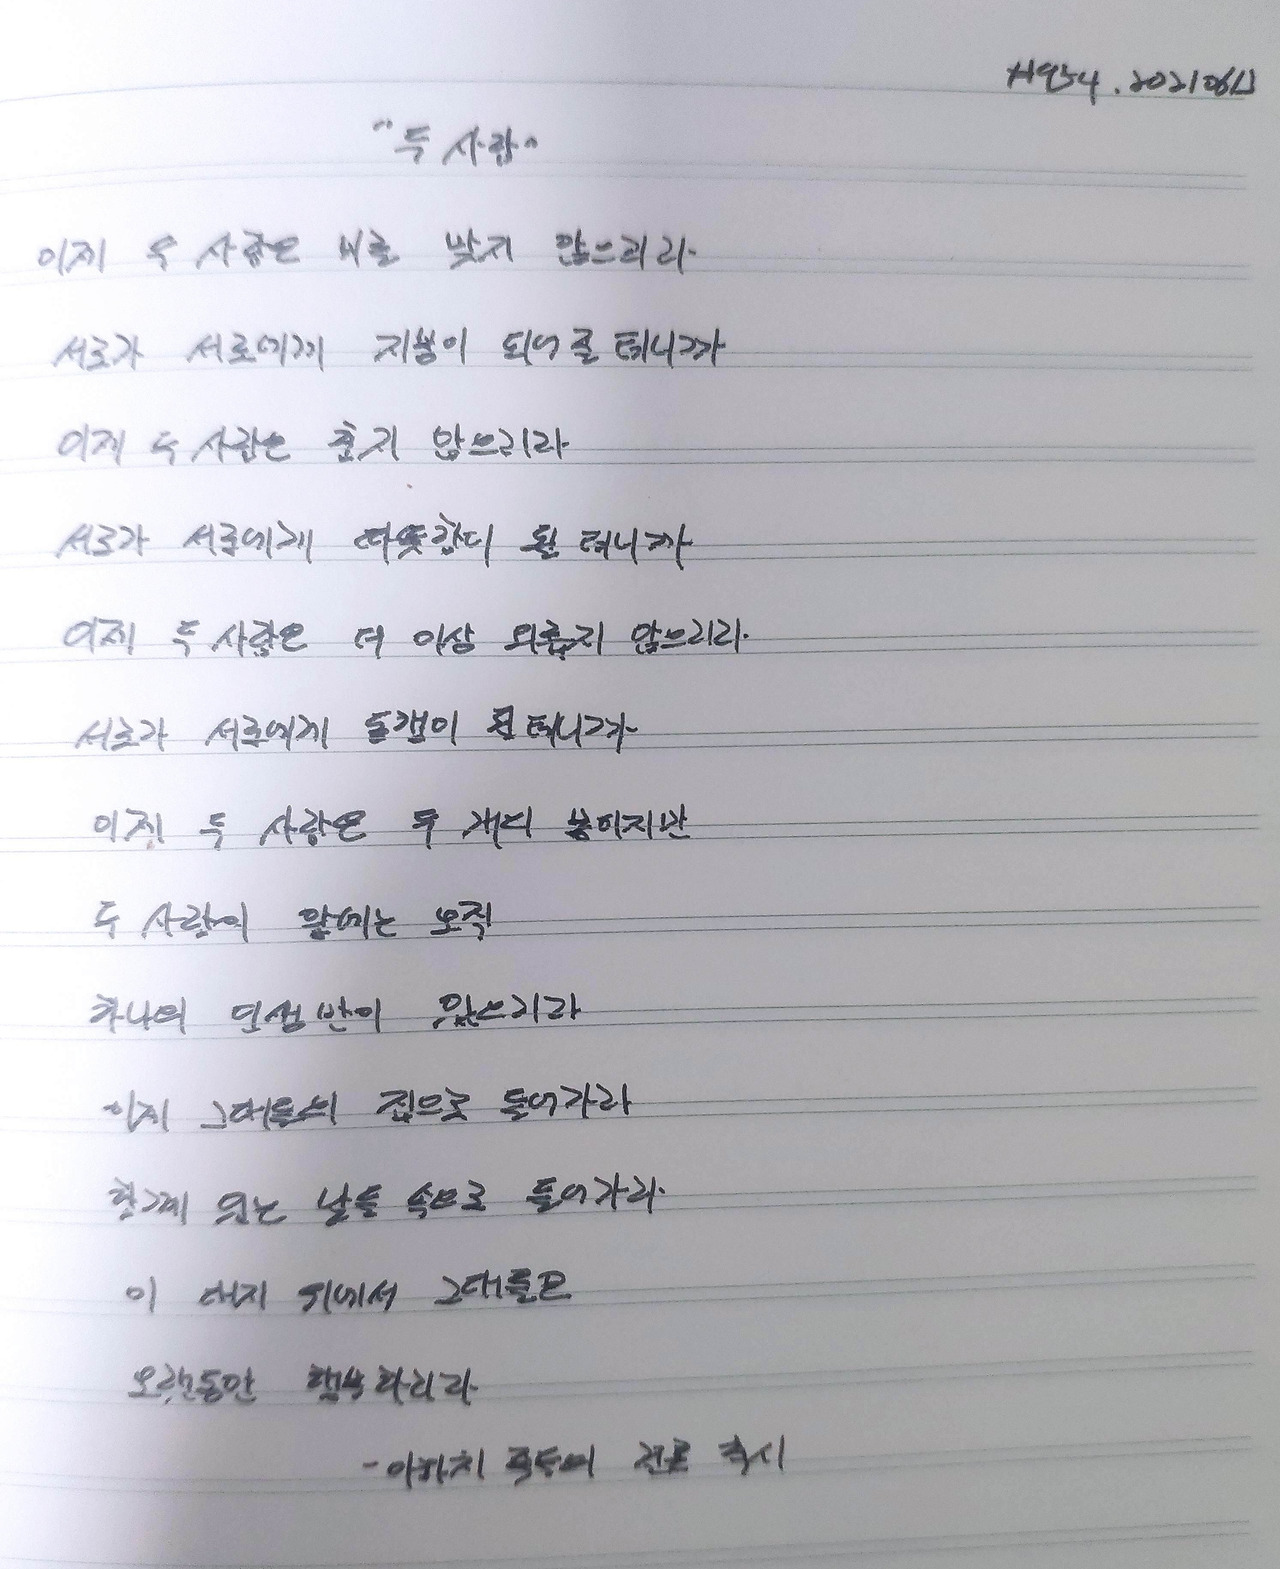 "두 사람"
이제 두 사람은 비를 맞지 않으리라
서로가 서로에게 지붕이 되어 줄 테니까
이제 두 사람은 춥지 않으리라
서로가 서로에게 따뜻함이 될 테니까
이제 두 사람은 더 이상 외롭지 않으리라
서로가 서로에게 동행이 될 테니까
이제 두 사람은 두 개의 몸이지만
두 사람의 앞에는 오직
하나의 인생만이 있으리라
이제 그대들의 집으로 들어가라
함께 있는 날들 속으로 들어가라
이 대지 위에서 그대들은
오랫동안 행복하리라
- 아파치 족들의 결혼 축시